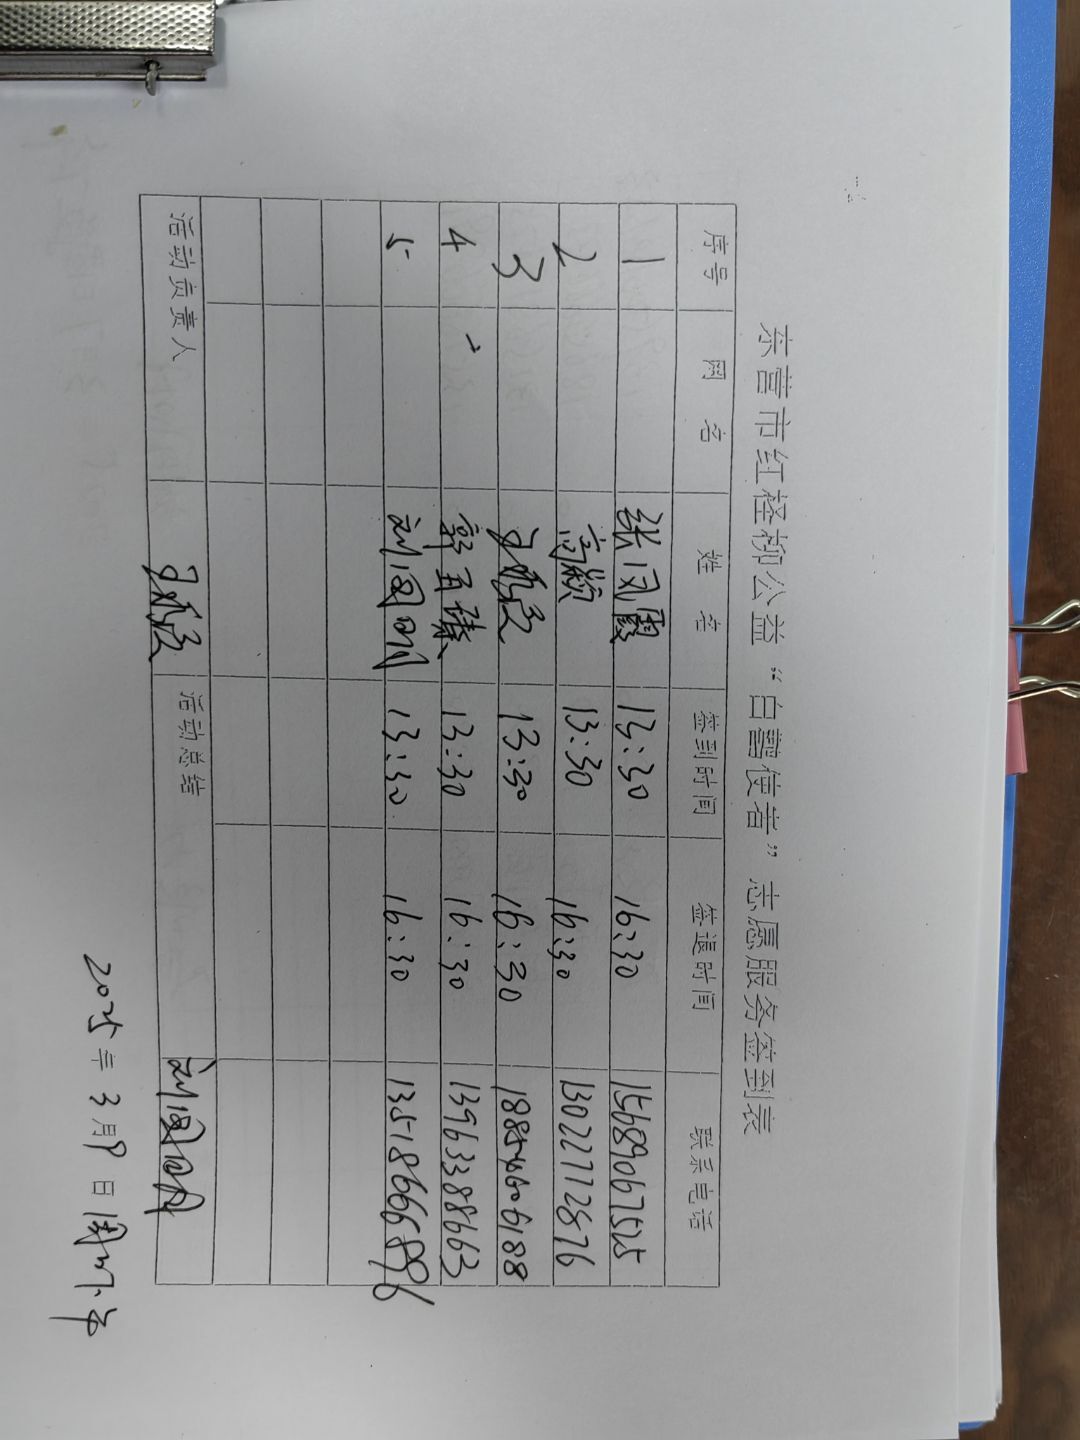 东营市红柽柳公益“白鹭使者”志愿服务签到表
序号 网 名 姓 名 签到时间 签退时间 联系电话
1 张凤霞 13:30 16:30 15689067525
2 高颖 13:30 16:30 13022712876
3 13:30 16:30 18854606188
4 郭玉臻 13:30 16:30 13963388663
5 刘国明 13:30 16:30 13518666896
活动负责人 活动总结
2025年3月9日